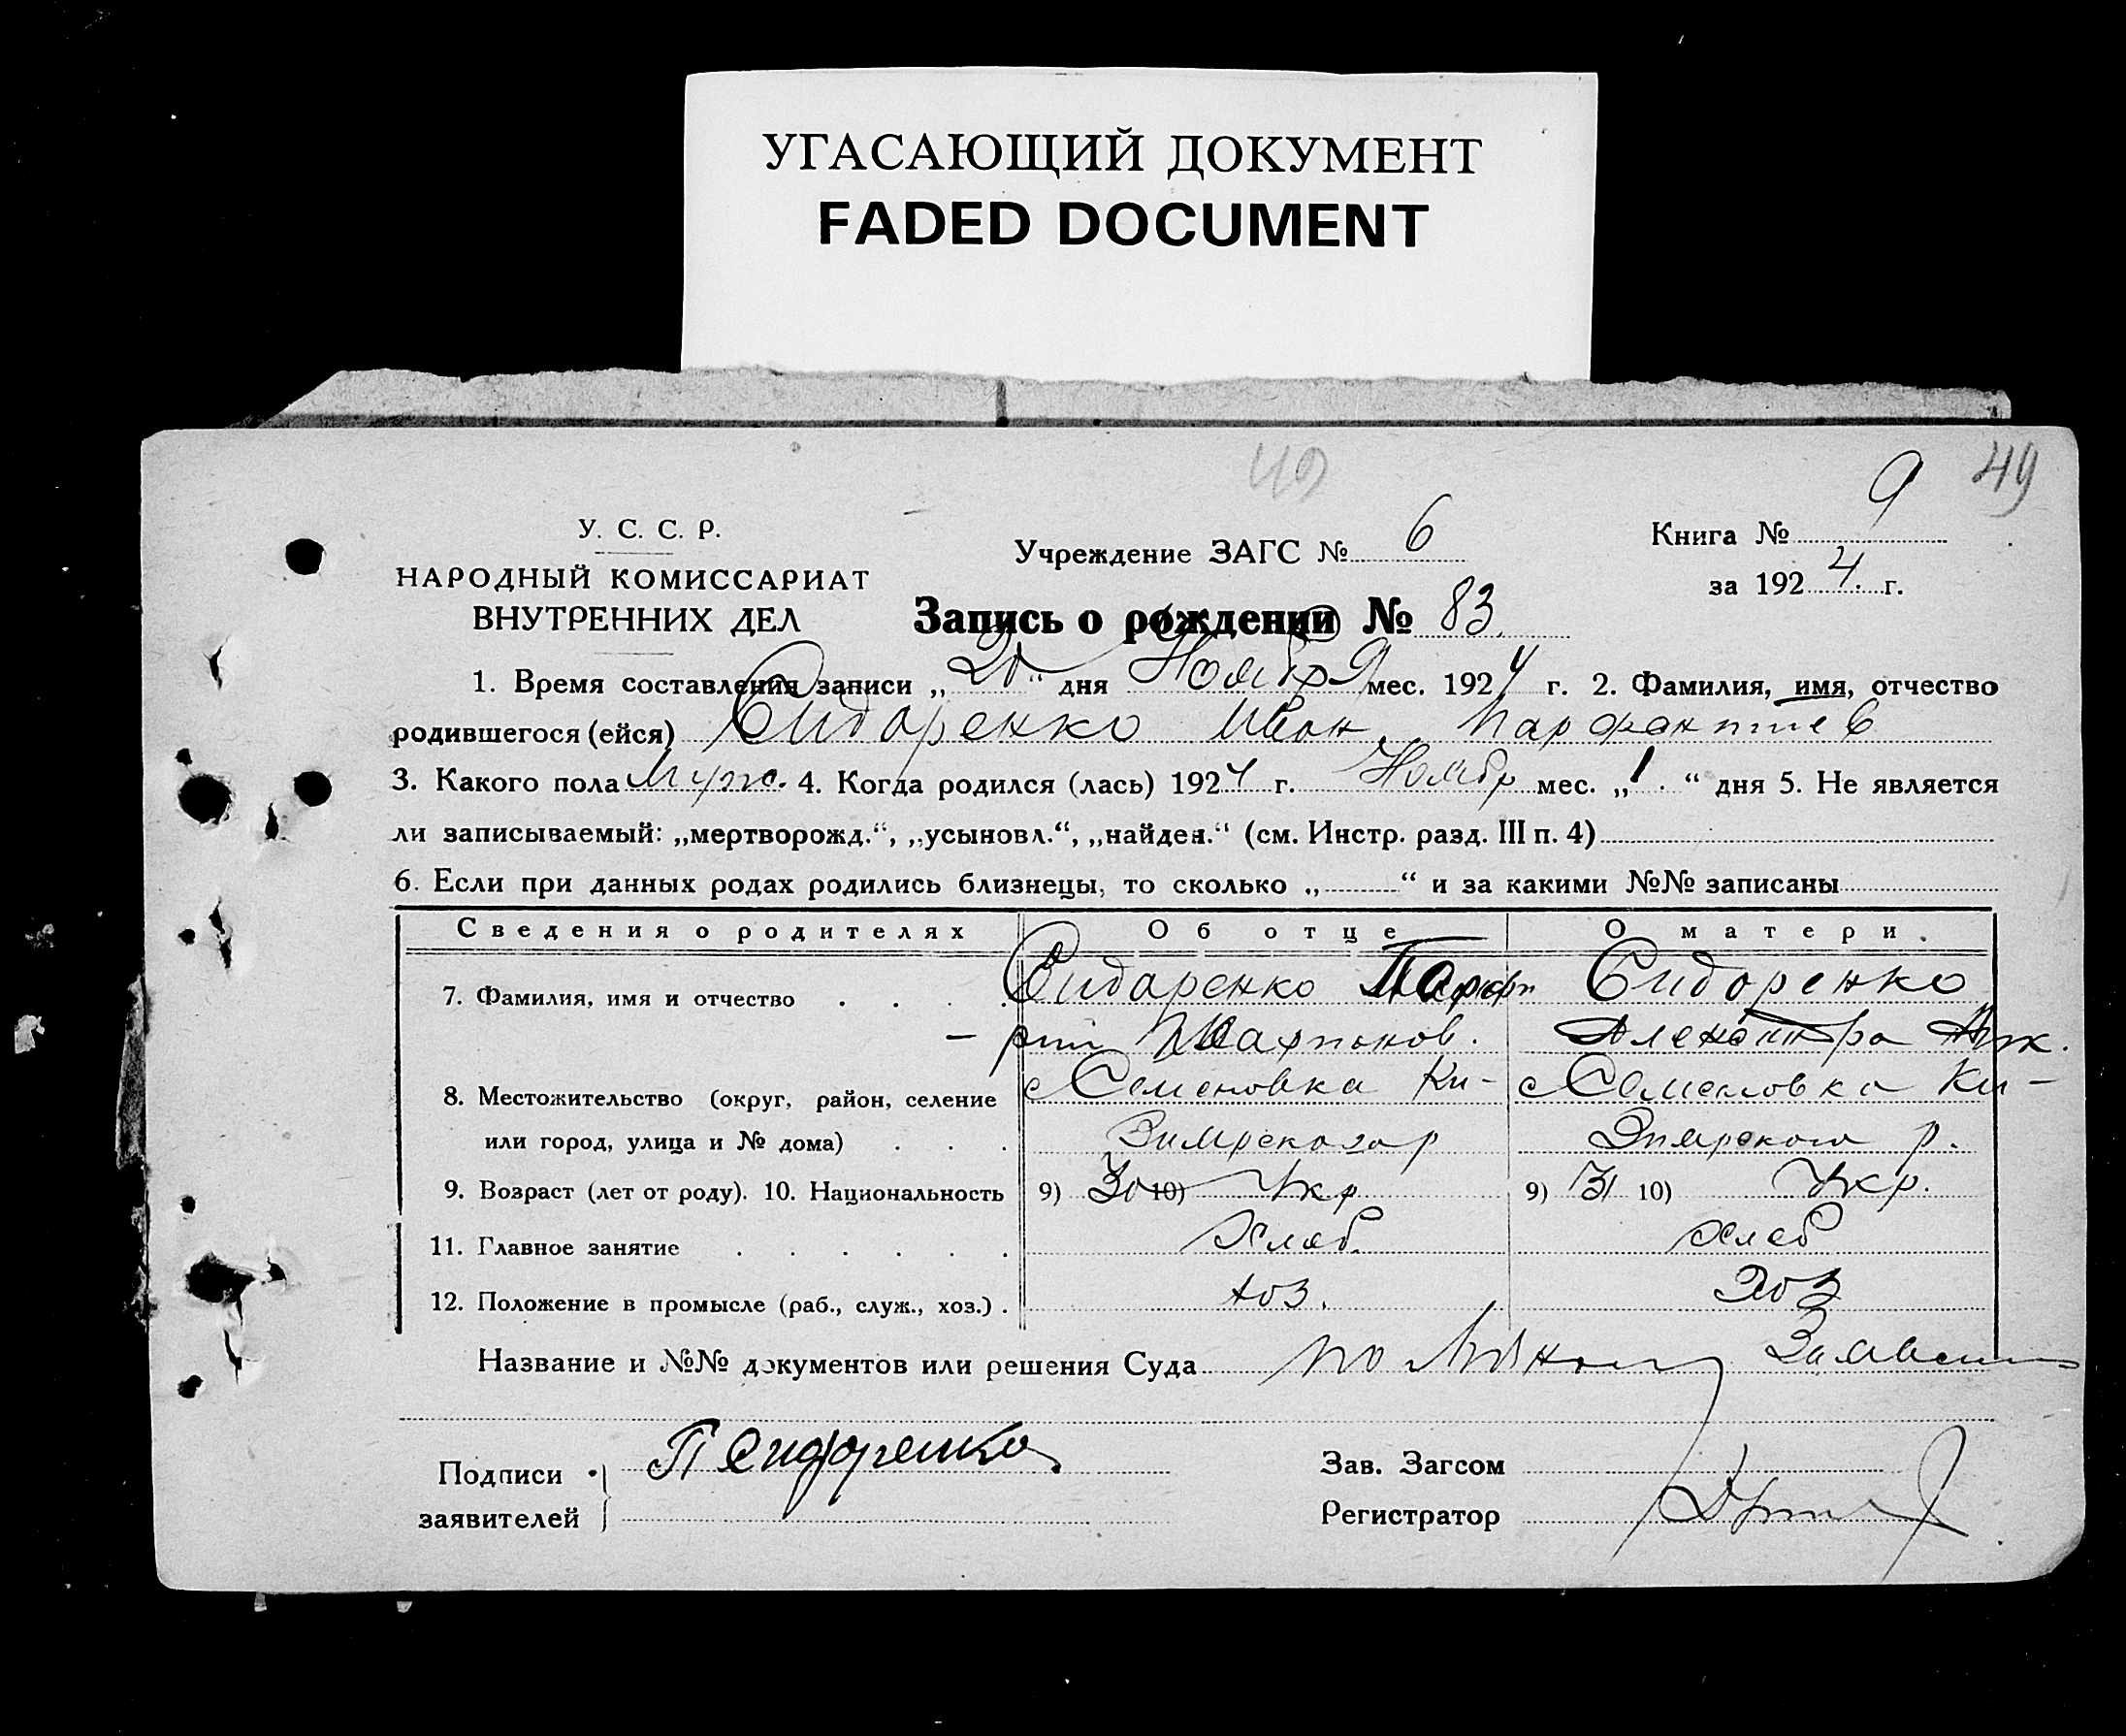 УГАСАЮЩИЙ ДОКУМЕНТ
FADED DOCUMENT
49 49
У. С. С. Р.
НАРОДНЫЙ КОМИССАРИАТ
ВНУТРЕННИХ ДЕЛ
Учреждение ЗАГС № 6
Книга № 9
за 1924 г.
Запись о рождении № 83.
1. Время составления записи „20“ дня Ноября мес. 1924 г. 2. Фамилия, имя, отчество
родившегося (ейся) Сидаренко Иван
3. Какого пола Муж. 4. Когда родился (лась) 1924 г. Ноябр мес. „1“ дня 5. Не является
ли записываемый: „мертворожд.“, „усыновл.“, „найден.“ (см. Инстр. разд. III п. 4)
6. Если при данных родах родились близнецы, то сколько „ “ и за какими №№ записаны
Сведения о родителях Об отце О матери.
7. Фамилия, имя и отчество Сидаренко Сидоренко
8. Местожительство (округ, район, селение с Семеновка Ки- с Семеновка Ки-
или город, улица и № дома)
9. Возраст (лет от роду). 10. Национальность 9) 30 10) Укр 9) 31 10) Укр.
11. Главное занятие Хлеб. хлеб
12. Положение в промысле (раб., служ., хоз.) хоз. Хоз
Название и №№ документов или решения Суда по
Подписи заявителей П Сидоренко
Зав. Загсом
Регистратор